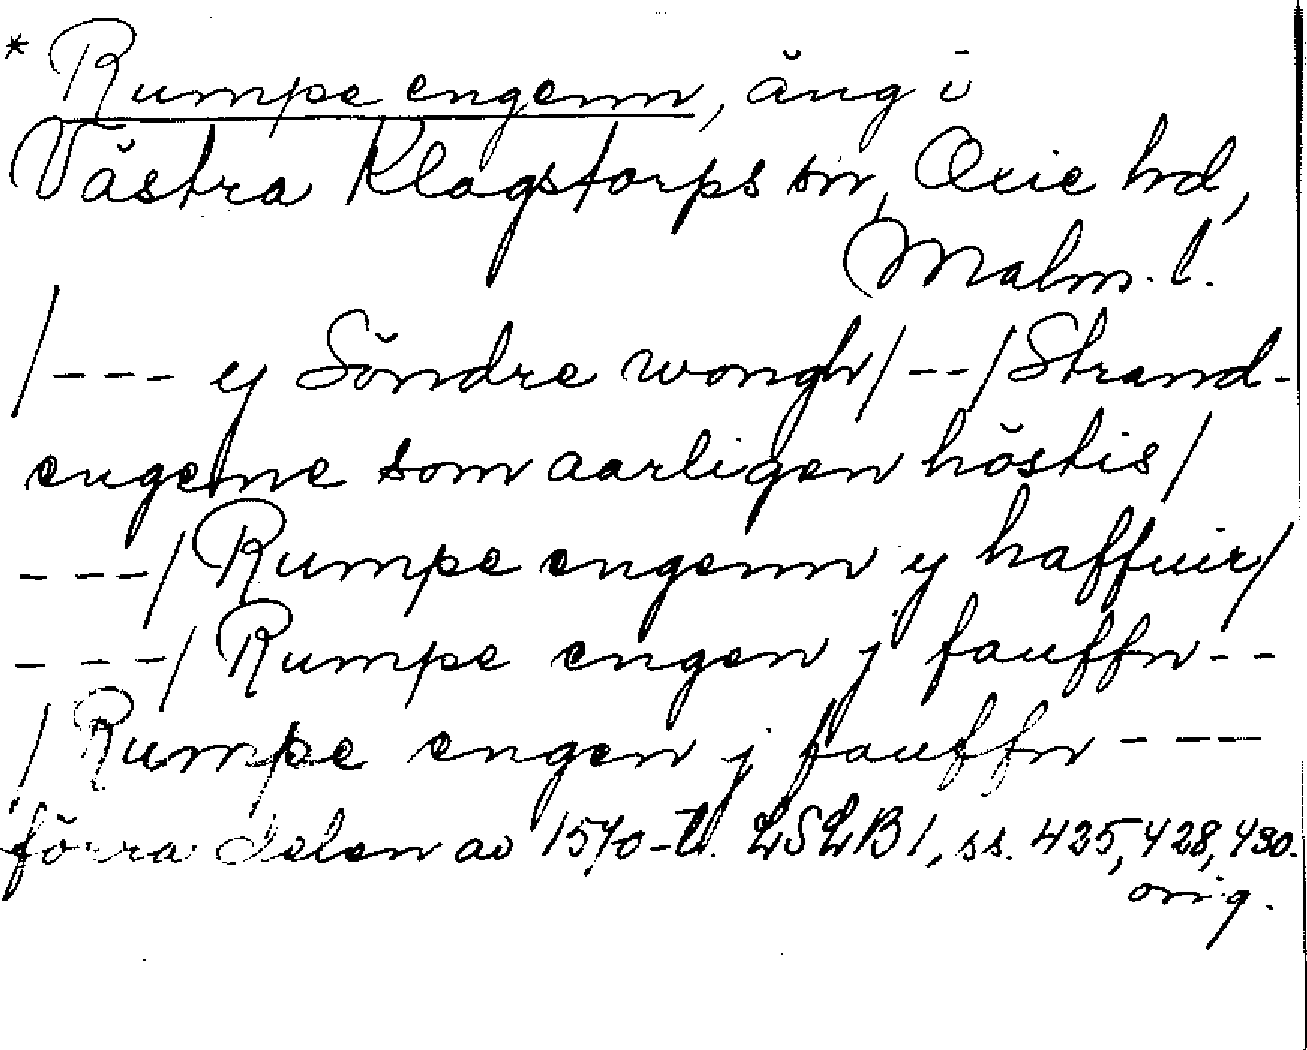 * Rumpe engenn, äng i
Västra Klagstorps sn, Oxie hd,
Malm. l.
/--- y Söndre wongh/--/Strand-
engerne som aarligen höstis/
---/Rumpe engenn y haffuir/
---/Rumpe engen j fauffn--
/Rumpe engen j fauffn---
förra delen av 1570-t. LSLB 1, ss. 425, 428, 430.
orig.